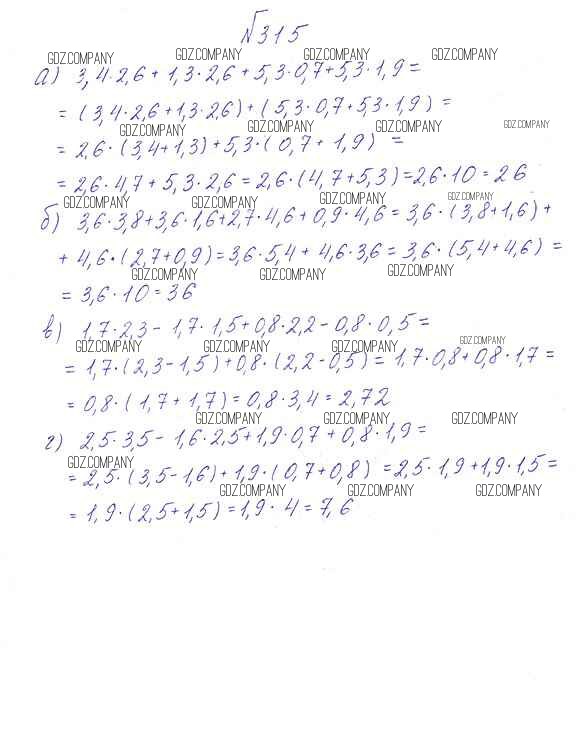 №315
GDZ.COMPANY GDZ.COMPANY GDZ.COMPANY GDZ.COMPANY
а) 3,4·2,6 + 1,3·2,6 + 5,3·0,7 + 5,3·1,9 =
= (3,4·2,6 + 1,3·2,6) + (5,3·0,7 + 5,3·1,9) =
GDZ.COMPANY GDZ.COMPANY GDZ.COMPANY GDZ.COMPANY
= 2,6·(3,4 + 1,3) + 5,3·(0,7 + 1,9) =
= 2,6·4,7 + 5,3·2,6 = 2,6·(4,7 + 5,3) = 2,6·10 = 26
GDZ.COMPANY GDZ.COMPANY GDZ.COMPANY GDZ.COMPANY
б) 3,6·3,8 + 3,6·1,6 + 2,7·4,6 + 0,9·4,6 = 3,6·(3,8 + 1,6) +
+ 4,6·(2,7 + 0,9) = 3,6·5,4 + 4,6·3,6 = 3,6·(5,4 + 4,6) =
GDZ.COMPANY GDZ.COMPANY GDZ.COMPANY
= 3,6·10 = 36
в) 1,7·2,3 – 1,7·1,5 + 0,8·2,2 – 0,8·0,5 =
GDZ.COMPANY GDZ.COMPANY GDZ.COMPANY GDZ.COMPANY
= 1,7·(2,3 – 1,5) + 0,8·(2,2 – 0,5) = 1,7·0,8 + 0,8·1,7 =
= 0,8·(1,7 + 1,7) = 0,8·3,4 = 2,72
GDZ.COMPANY GDZ.COMPANY GDZ.COMPANY
г) 2,5·3,5 – 1,6·2,5 + 1,9·0,7 + 0,8·1,9 =
GDZ.COMPANY
= 2,5·(3,5 – 1,6) + 1,9·(0,7 + 0,8) = 2,5·1,9 + 1,9·1,5 =
GDZ.COMPANY GDZ.COMPANY GDZ.COMPANY
= 1,9·(2,5 + 1,5) = 1,9·4 = 7,6